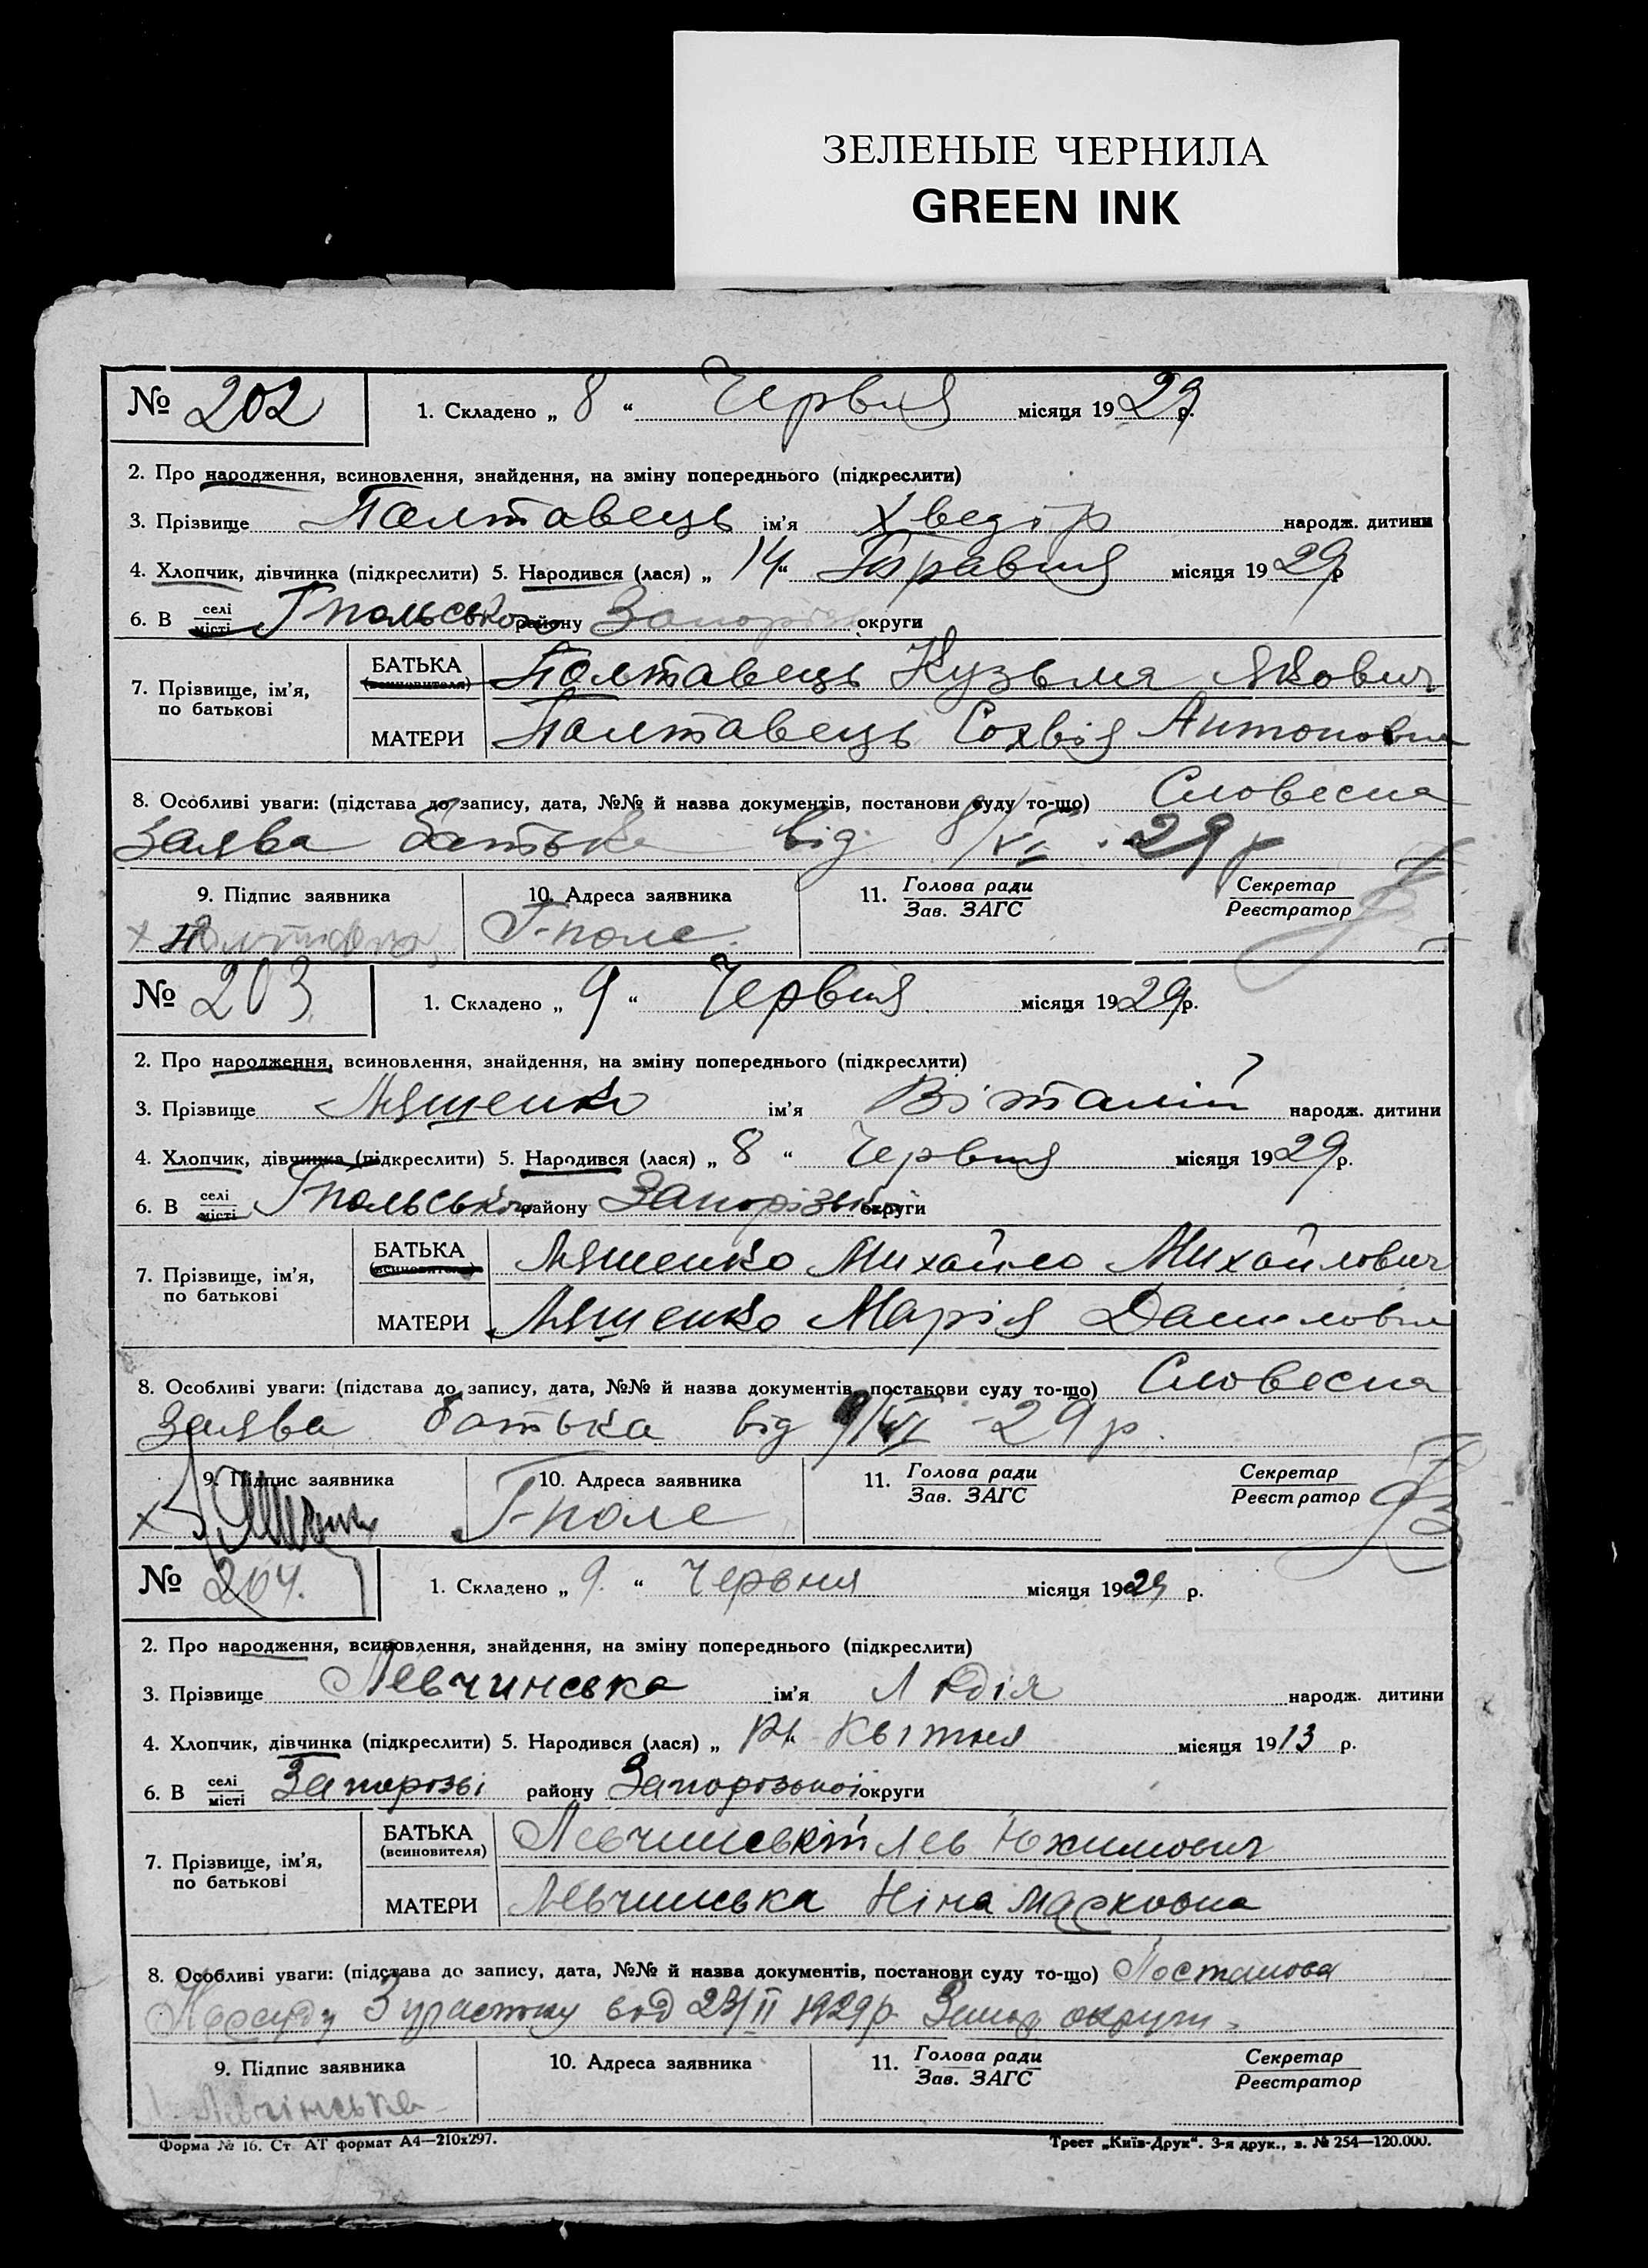 ЗЕЛЕНЫЕ ЧЕРНИЛА
GREEN INK
№ 202 1. Складено „ 8 “ Червня місяця 1929 р.
2. Про народження, всиновлення, знайдення, на зміну попереднього (підкреслити)
3. Прізвище Полтавець ім’я Хведір народж. дитини
4. Хлопчик, дівчинка (підкреслити) 5. Народився (лася) „ 14 “ Травня місяця 1929 р
6. В селі місті Гпольсько району округи
7. Прізвище, ім’я, по батькові
БАТЬКА (всиновителя) Полтавець Кузьма Якович
МАТЕРИ Полтавець Сохвія Антоновна
8. Особливі уваги: (підстава до запису, дата, №№ й назва документів, постанови суду то-що) Словесна
заява батька від 8/VI - 29 р
9. Підпис заявника 10. Адреса заявника 11. Голова ради Зав. ЗАГС Секретар Реєстратор
х Г-поле.
№ 203 1. Складено „ 9 “ Червня місяця 1929 р.
2. Про народження, всиновлення, знайдення, на зміну попереднього (підкреслити)
3. Прізвище Лященко ім’я Віталій народж. дитини
4. Хлопчик, дівчинка (підкреслити) 5. Народився (лася) „ 8 “ Червня місяця 1929 р.
6. В селі місті Гпольсько району Запорізько округи
7. Прізвище, ім’я, по батькові
БАТЬКА (всиновителя) Лященко Михайло Михайлович
МАТЕРИ Лященко Марія Даниловна
8. Особливі уваги: (підстава до запису, дата, №№ й назва документів, постанови суду то-що) Словесна
заява батька від 9/VI - 29 р.
9. Підпис заявника 10. Адреса заявника 11. Голова ради Зав. ЗАГС Секретар Реєстратор
х Г-поле
№ 204. 1. Складено „ 9. “ Червня місяця 1929 р.
2. Про народження, всиновлення, знайдення, на зміну попереднього (підкреслити)
3. Прізвище Левчинська ім’я Лідія народж. дитини
4. Хлопчик, дівчинка (підкреслити) 5. Народився (лася) „ Квітня місяця 1913 р.
6. В селі місті Запорозьі району Запорозької округи
7. Прізвище, ім’я, по батькові
БАТЬКА (всиновителя) Левчинський Лев Юхимович
МАТЕРИ Левчинська Ніна Марковна
8. Особливі уваги: (підстава до запису, дата, №№ й назва документів, постанови суду то-що) Постанова
Нарсуду 3 участку від 23/II 1929 р. Запор округи.
9. Підпис заявника 10. Адреса заявника 11. Голова ради Зав. ЗАГС Секретар Реєстратор
Форма № 16. Ст. АТ формат А4—210х297. Трест „Київ-Друк“. 3-я друк., з. № 254—120.000.